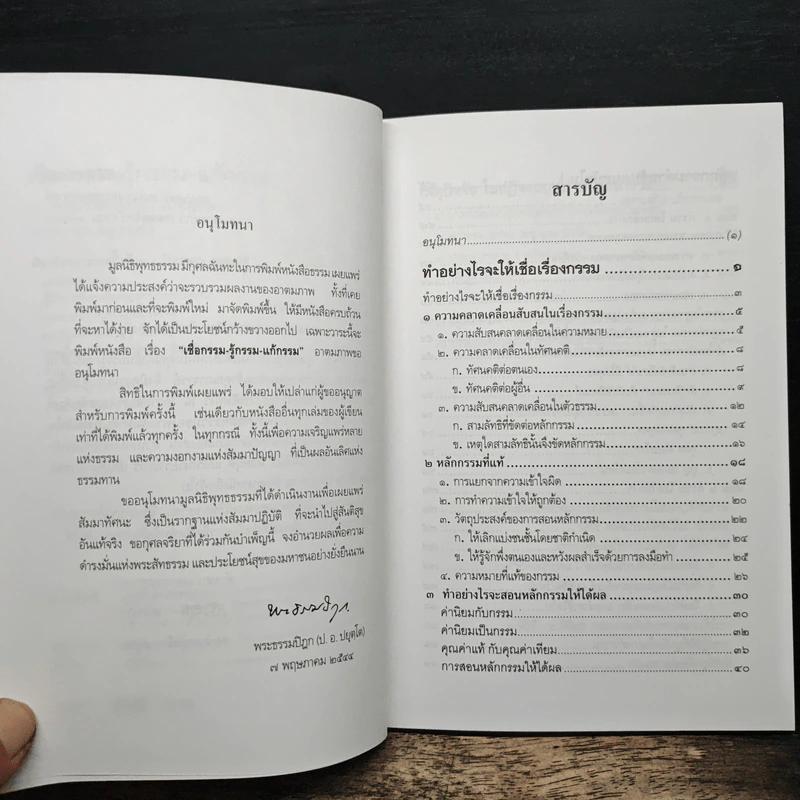 อนุโมทนา
มูลนิธิพุทธธรรม มีกุศลฉันทะในการพิมพ์หนังสือธรรม เผยแพร่
ได้แจ้งความประสงค์ว่าจะรวบรวมผลงานของอาตมภาพ ทั้งที่เคย
พิมพ์มาก่อนและที่จะพิมพ์ใหม่ มาจัดพิมพ์ขึ้น ให้มีหนังสือครบถ้วน
ที่จะหาได้ง่าย จักได้เป็นประโยชน์กว้างขวางออกไป เฉพาะวาระนี้จะ
พิมพ์หนังสือ เรื่อง "เชื่อกรรม-รู้กรรม-แก้กรรม" อาตมภาพขอ
อนุโมทนา
สิทธิในการพิมพ์เผยแพร่ ได้มอบให้เปล่าแก่ผู้ขออนุญาต
สำหรับการพิมพ์ครั้งนี้ เช่นเดียวกับหนังสืออื่นทุกเล่มของผู้เขียน
เท่าที่ได้พิมพ์แล้วทุกครั้ง ในทุกกรณี ทั้งนี้เพื่อความเจริญแพร่หลาย
แห่งธรรม และความงอกงามแห่งสัมมาปัญญา ที่เป็นผลอันเลิศแห่ง
ธรรมทาน
ขออนุโมทนามูลนิธิพุทธธรรมที่ได้ดำเนินงานเพื่อเผยแพร่
สัมมาทัศนะ ซึ่งเป็นรากฐานแห่งสัมมาปฏิบัติ ที่จะนำไปสู่สันติสุข
อันแท้จริง ขอกุศลจริยาที่ได้ร่วมกันบำเพ็ญนี้ จงอำนวยผลเพื่อความ
ดำรงมั่นแห่งพระสัทธรรม และประโยชน์สุขของมหาชนอย่างยั่งยืนนาน
พระธรรมปิฎก
พระธรรมปิฎก (ป. อ. ปยุตฺโต)
๗ พฤษภาคม ๒๕๔๔
สารบัญ
อนุโมทนา...(๑)
ทำอย่างไรจะให้เชื่อเรื่องกรรม...๑
ทำอย่างไรจะให้เชื่อเรื่องกรรม...๓
๑ ความคลาดเคลื่อนสับสนในเรื่องกรรม...๕
๑. ความสับสนคลาดเคลื่อนในความหมาย...๕
๒. ความคลาดเคลื่อนในทัศนคติ...๘
ก. ทัศนคติต่อตนเอง...๘
ข. ทัศนคติต่อผู้อื่น...๙
๓. ความสับสนคลาดเคลื่อนในตัวธรรม...๑๒
ก. สามลัทธิที่ขัดต่อหลักกรรม...๑๔
ข. เหตุใดสามลัทธินั้นจึงขัดหลักกรรม...๑๖
๒ หลักกรรมที่แท้...๑๘
๑. การแยกจากความเข้าใจผิด...๑๘
๒. การทำความเข้าใจให้ถูกต้อง...๒๐
๓. วัตถุประสงค์ของการสอนหลักกรรม...๒๒
ก. ให้เลิกแบ่งชนชั้นโดยชาติกำเนิด...๒๔
ข. ให้รู้จักพึ่งตนเองและหวังผลสำเร็จด้วยการลงมือทำ...๒๕
๔. ความหมายที่แท้ของกรรม...๒๖
๓ ทำอย่างไรจะสอนหลักกรรมให้ได้ผล...๓๐
ค่านิยมกับกรรม...๓๐
ค่านิยมเป็นกรรม...๓๒
คุณค่าแท้ กับคุณค่าเทียม...๓๖
การสอนหลักกรรมให้ได้ผล...๔๐